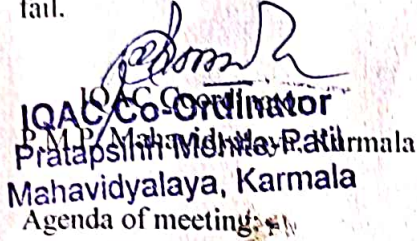 fail.
IQAC Coordinator
IQAC Co-Ordinator
P.M.P. Mahavidyalaya, Karmala
Pratapsinh Mohite-Patil
Mahavidyalaya, Karmala
Agenda of meeting: